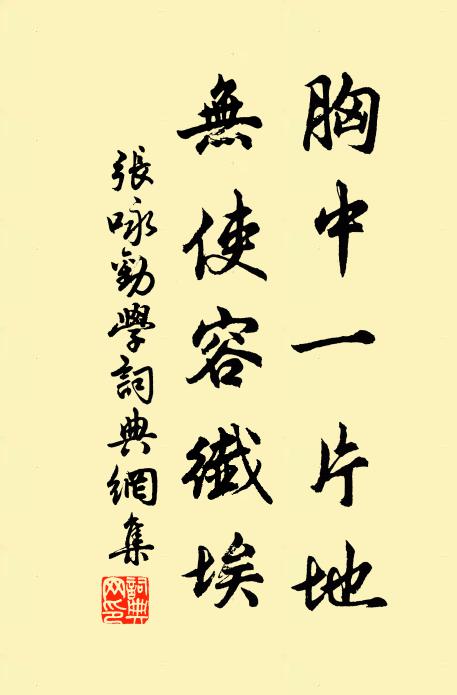 胸中一片地
無使容纖埃
張咏勸學詞典網集
詞典網印